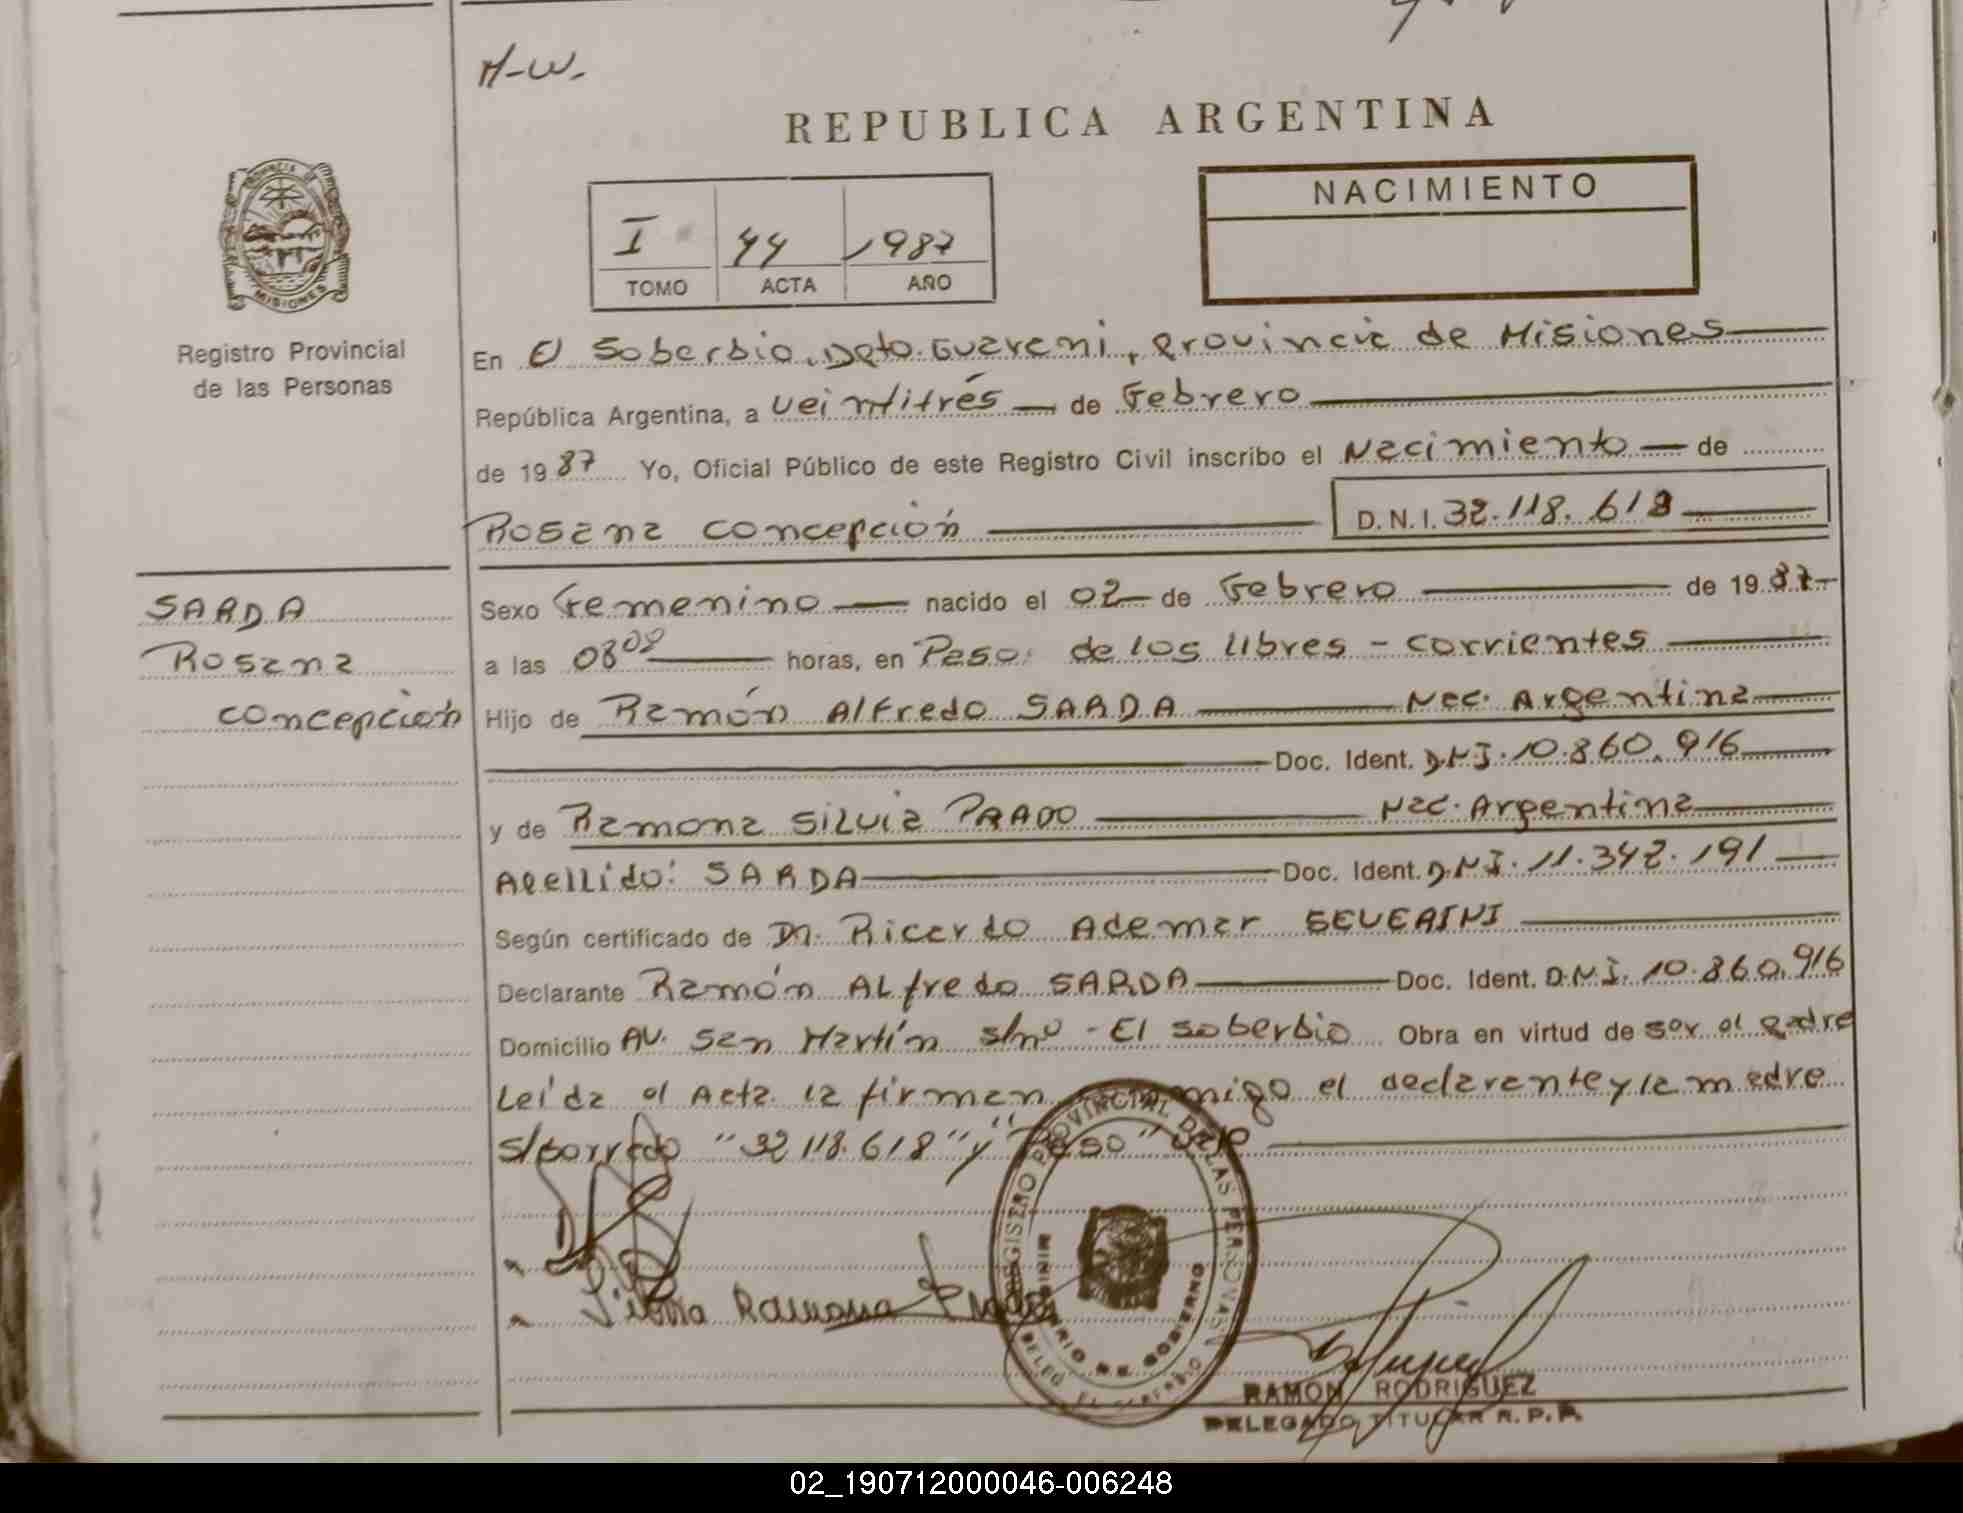 H-W-
REPUBLICA ARGENTINA
PROVINCIA DE MISIONES
Registro Provincial
de las Personas
I 44 1987
TOMO ACTA AÑO
NACIMIENTO
En El Soberbio, Dpto. Guarani, Provincia de Misiones
República Argentina, a Veintitrés de Febrero
de 1987 Yo, Oficial Público de este Registro Civil inscribo el Nacimiento de
Rosana Concepción D.N.I. 32.118.618
SARDA
Rosana
Concepción
Sexo Femenino nacido el 02 de Febrero de 1987
a las 08 horas, en Paso de los Libres - Corrientes
Hijo de Ramón Alfredo SARDA Nac. Argentina
Doc. Ident. D.N.I. 10.860.916
y de Ramona Silvia PRADO Nac. Argentina
Apellido: SARDA Doc. Ident. D.N.I. 11.342.191
Según certificado de Dr. Ricardo Ademar SEVERINI
Declarante Ramón Alfredo SARDA Doc. Ident. D.N.I. 10.860.916
Domicilio AV. San Martín s/nº - El Soberbio Obra en virtud de ser el Padre
Leída el Acta la firman conmigo el declarante y la madre
s/borrado "32 118.618" y "Paso" Vale
Silvia Ramona Prado
REGISTRO PROVINCIAL DE LAS PERSONAS
MINISTERIO DE GOBIERNO
DELEG. EL SOBERBIO
RAMON RODRIGUEZ
DELEGADO TITULAR R.P.P.
02_190712000046-006248